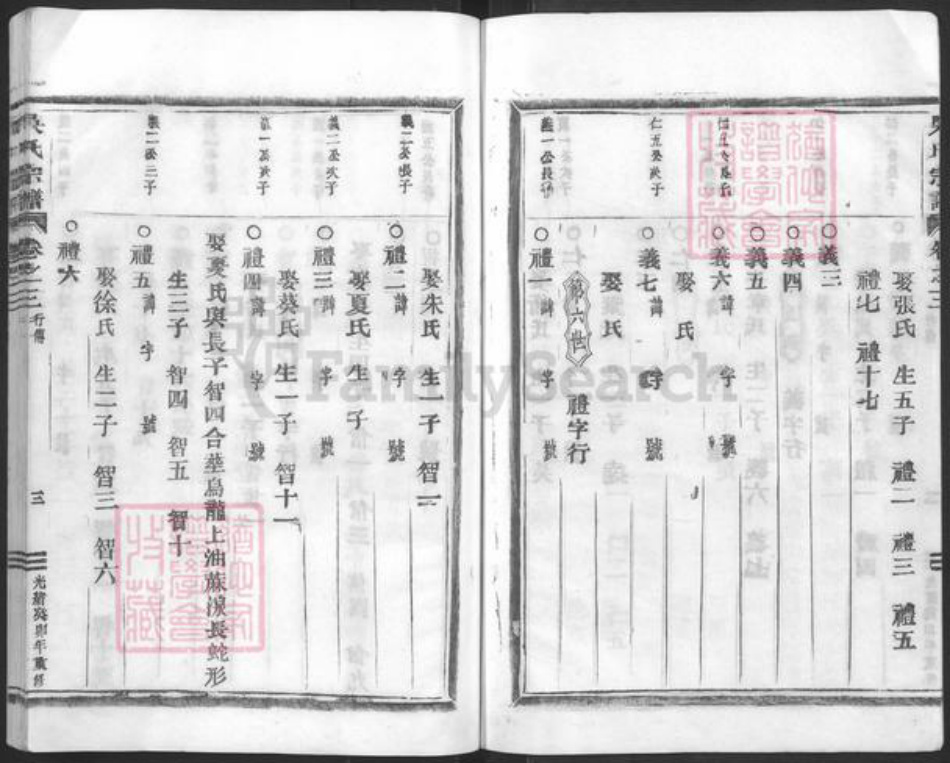 娶張氏 生五子 禮二 禮三 禮五
禮七 禮十七
○義三
○義四
○義五
○義六 諱 字 號
娶 氏
仁五公次子
○義七 諱 字 號
娶 氏
第六世 禮字行
義一公長子
○禮一 諱 字 號
義二公長子
娶朱氏 生一子 智一
○禮二 諱 字 號
義二公次子
娶夏氏 生 子
○禮三 諱 字 號
娶葵氏 生一子 智十一
義一公次子
○禮四 諱 字 號
娶夏氏與長子智四合塟烏龍上油蔴湶長蛇形
生三子 智四 智五 智十
義二公三子
○禮五 諱 字 號
娶徐氏 生二子 智三 智六
○禮六
吳氏宗譜 卷之三 行傳
三
光緒癸卯年重修
FamilySearch